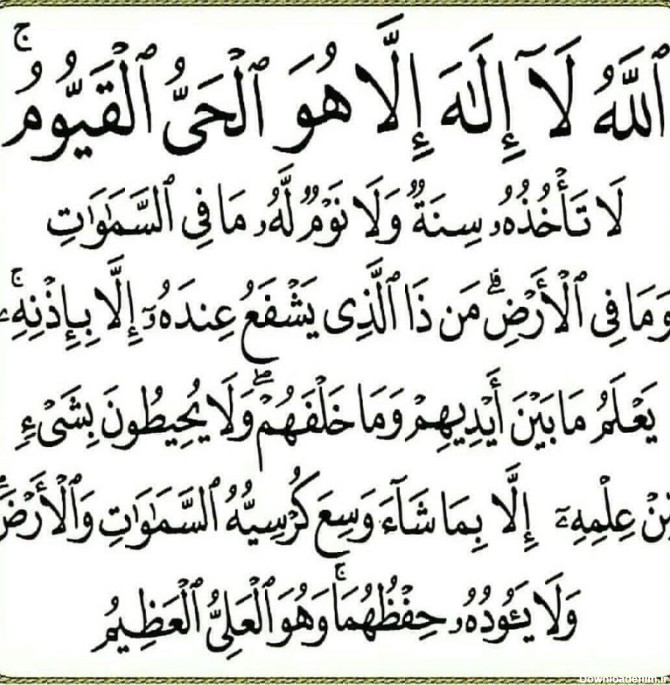 ٱللَّهُ لَآ إِلَٰهَ إِلَّا هُوَ ٱلْحَىُّ ٱلْقَيُّومُ ۚ
لَا تَأْخُذُهُۥ سِنَةٌ وَلَا نَوْمٌ لَّهُۥ مَا فِى ٱلسَّمَٰوَٰتِ
وَمَا فِى ٱلْأَرْضِ ۗ مَن ذَا ٱلَّذِى يَشْفَعُ عِندَهُۥٓ إِلَّا بِإِذْنِهِۦ ۚ
يَعْلَمُ مَا بَيْنَ أَيْدِيهِمْ وَمَا خَلْفَهُمْ ۖ وَلَا يُحِيطُونَ بِشَىْءٍ
مِّنْ عِلْمِهِۦٓ إِلَّا بِمَا شَآءَ وَسِعَ كُرْسِيُّهُ ٱلسَّمَٰوَٰتِ وَٱلْأَرْضَ
وَلَا يَـُٔودُهُۥ حِفْظُهُمَا ۚ وَهُوَ ٱلْعَلِىُّ ٱلْعَظِيمُ